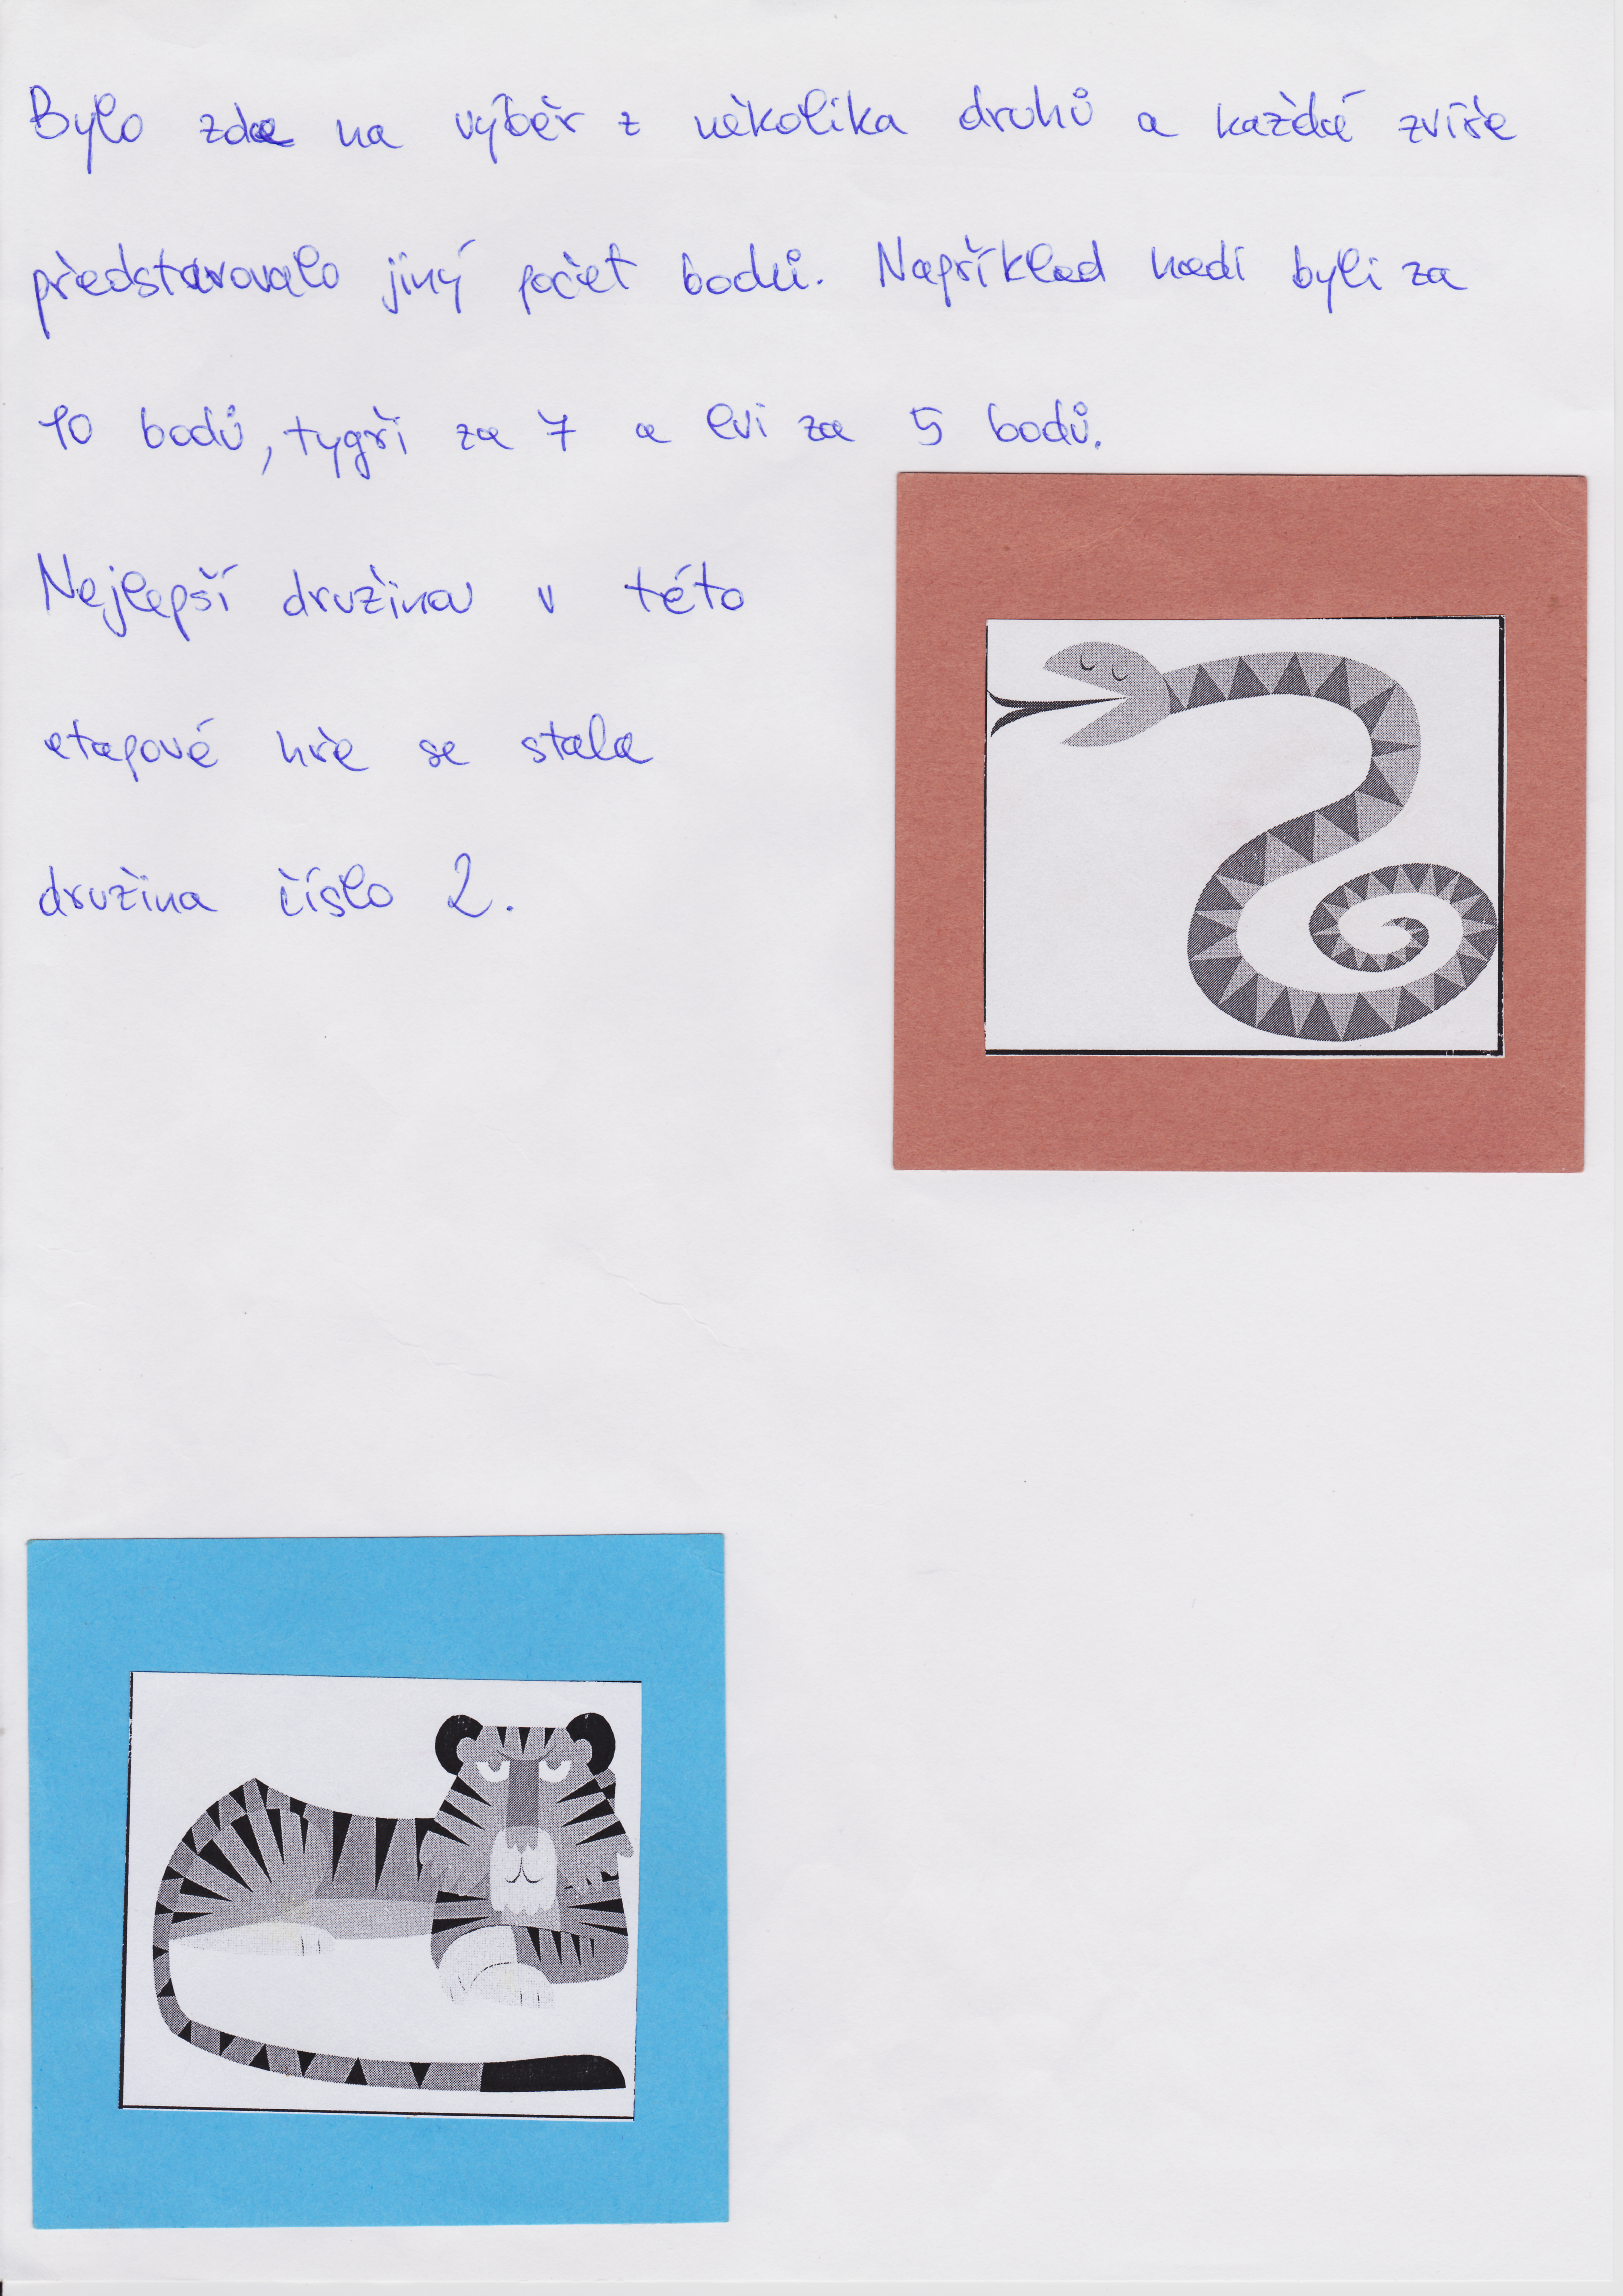 Bylo zde na výběr z několika druhů a každé zvíře
představovalo jiný počet bodů. Například hadi byli za
10 bodů, tygři za 7 a lvi za 5 bodů.
Nejlepší družinou v této
etapové hře se stala
družina číslo 2.